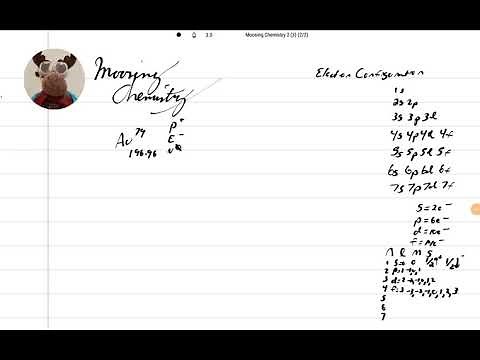 3.0 Moosing Chemistry 2 (3) (2/2)
Moosing
Chemistry
Au 79
196.96
p+
E-
Electron Configuration
1s
2s 2p
3s 3p 3d
4s 4p 4d 4f
5s 5p 5d 5f
6s 6p 6d 6f
7s 7p 7d 7f
s = 2e-
p = 6e-
d = 10e-
f = 14e-
n l m s
1 s=0 0
2 p=1 -1,0,1
3 d=2 -2,-1,0,1,2
4 f=3 -3,-2,-1,0,1,2,3
5
6
7